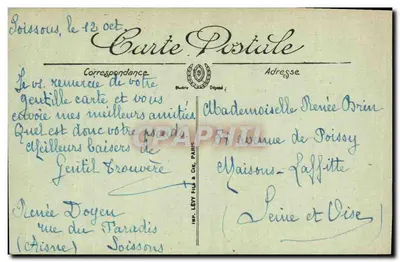 Soissons, le 12 oct
Carte Postale
Correspondance
Adresse
Je vs. remercie de votre
gentille carte et vous
envoie mes meilleurs amitiés
Quel est donc votre
Meilleurs baisers de
Gentil Trouvère
Renée Doyen
rue du Paradis
(Aisne) Soissons
IMP. LÉVY FILS & CIE, PARIS
Mademoiselle Renée Brin
avenue de Poissy
Maisons-Laffitte
(Seine et Oise)